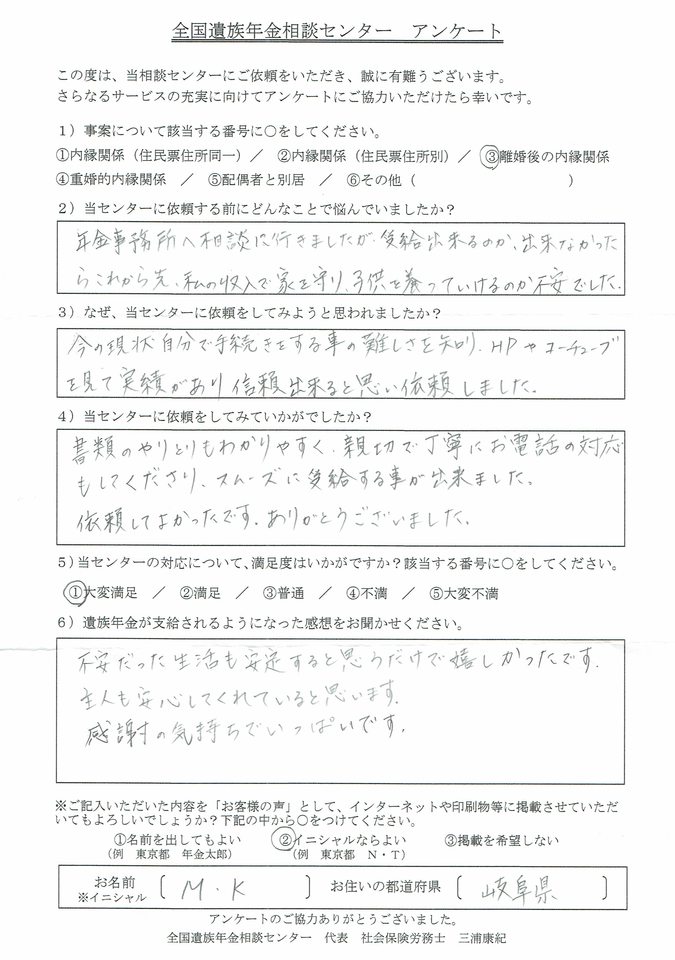 全国遺族年金相談センター　アンケート
この度は、当相談センターにご依頼をいただき、誠に有難うございます。
さらなるサービスの充実に向けてアンケートにご協力いただけたら幸いです。
１）事案について該当する番号に○をしてください。
①内縁関係（住民票住所同一）／　②内縁関係（住民票住所別）／　③離婚後の内縁関係
④重婚的内縁関係　／　⑤配偶者と別居　／　⑥その他（　　　　　　　　　　　）
２）当センターに依頼する前にどんなことで悩んでいましたか？
年金事務所へ相談に行きましたが、受給出来るのか、出来なかった
らこれから先、私の収入で家を守り、子供を養っていけるのか不安でした。
３）なぜ、当センターに依頼をしてみようと思われましたか？
今の現状自分で手続きをする事の難しさを知り、HPやユーチューブ
を見て実績があり信頼出来ると思い依頼しました。
４）当センターに依頼をしてみていかがでしたか？
書類のやりとりもわかりやすく、親切で丁寧にお電話の対応
もしてくださり、スムーズに受給する事が出来ました。
依頼してよかったです。ありがとうございました。
５）当センターの対応について、満足度はいかがですか？該当する番号に○をしてください。
①大変満足　／　②満足　／　③普通　／　④不満　／　⑤大変不満
６）遺族年金が支給されるようになった感想をお聞かせください。
不安だった生活も安定すると思うだけで嬉しかったです。
主人も安心してくれていると思います。
感謝の気持ちでいっぱいです。
※ご記入いただいた内容を「お客様の声」として、インターネットや印刷物等に掲載させていただ
いてもよろしいでしょうか？下記の中から○をつけてください。
①名前を出してもよい　　②イニシャルならよい　　③掲載を希望しない
（例　東京都　年金太郎）　　（例　東京都　Ｎ・Ｔ）
お名前　〔　M・K　〕　お住いの都道府県　〔　岐阜県　〕
※イニシャル
アンケートのご協力ありがとうございました。
全国遺族年金相談センター　代表　社会保険労務士　三浦康紀